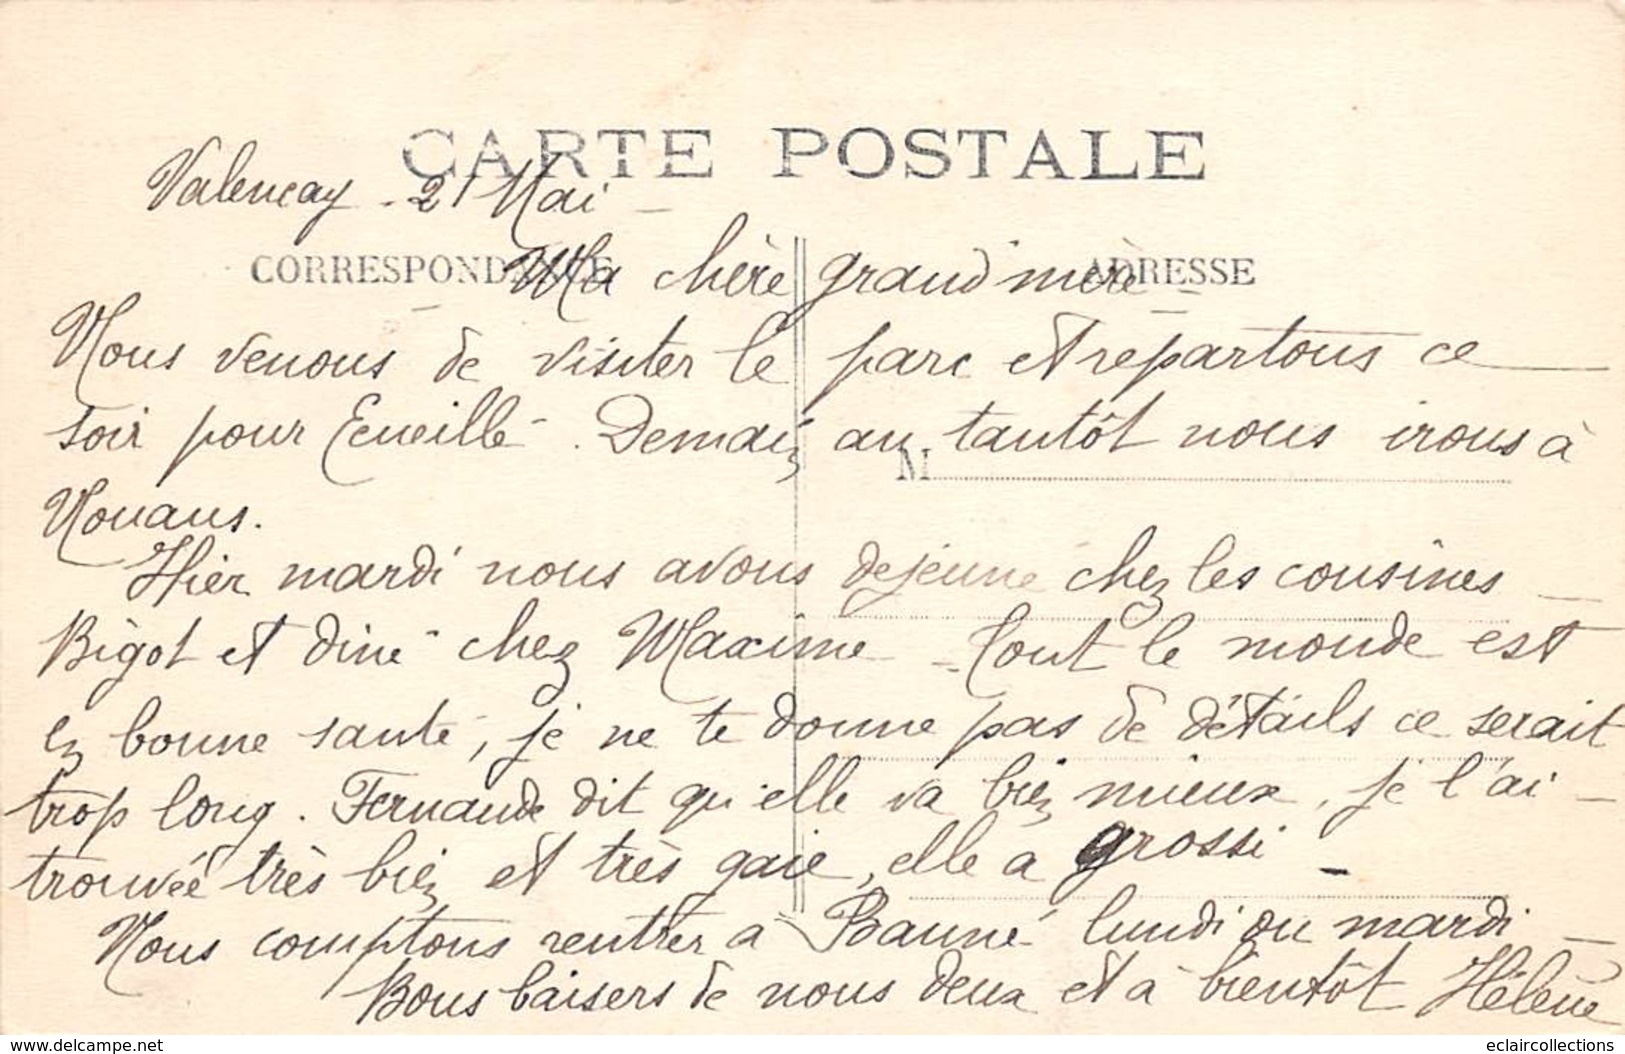 CARTE POSTALE
Valencay - 21 Mai -
CORRESPONDANCE ADRESSE
Ma chère grand'mère -
Nous venons de visiter le parc et repartons ce
soir pour Ecueillé. Demain au tantôt nous irons à
M
Nouans.
Hier mardi nous avons déjeuné chez les cousines
Bigot et diné chez Maxime - Tout le monde est
en bonne santé, je ne te donne pas de détails ce serait
trop long. Fernande dit qu'elle va bien mieux, je l'ai
trouvée très bien et très gaie, elle a grossi -
Nous comptons rentrer à Baumé lundi ou mardi -
Bons baisers de nous deux et à bientôt Hélène
www.delcampe.net eclaircollections